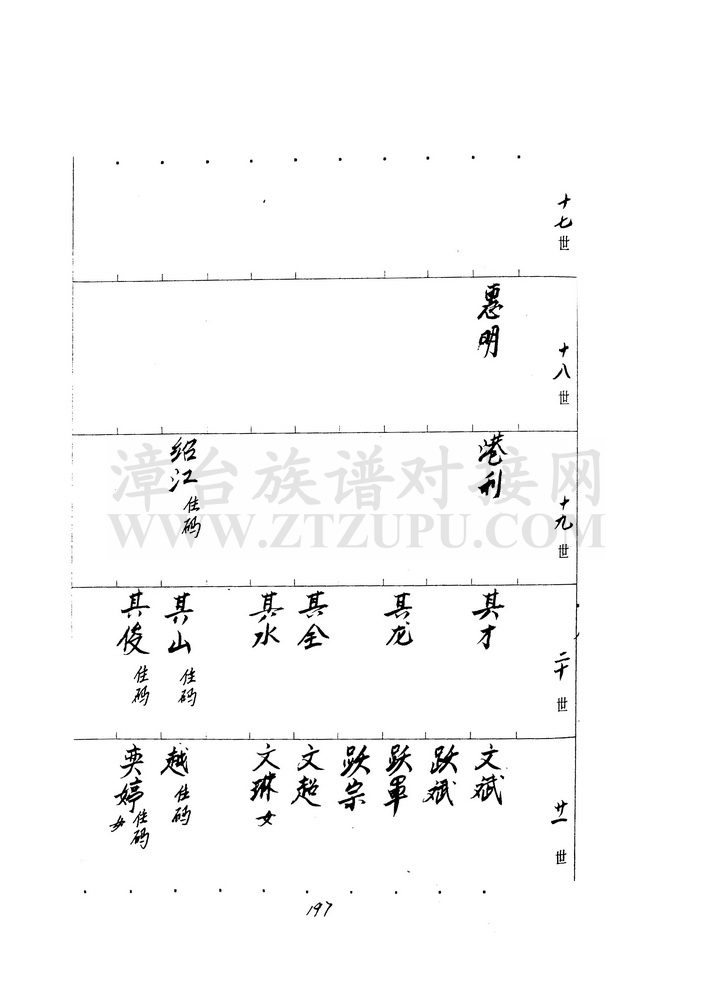 十七世
十八世
惠明
十九世
港利
绍江 住码
二十世
其才
其龙
其全
其水
其山 住码
其俊 住码
廿一世
文斌
跃斌
跃军
跃宗
文超
文琳 女
越 住码
奕婷 女 住码
197
漳台族谱对接网
WWW.ZTZUPU.COM